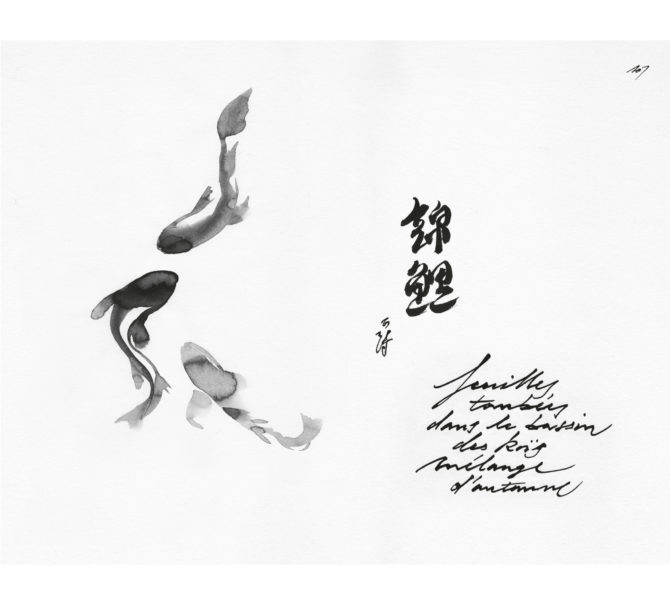 錦鯉
feuilles
tombées
dans le bassin
des koïs
mélange
d'automne